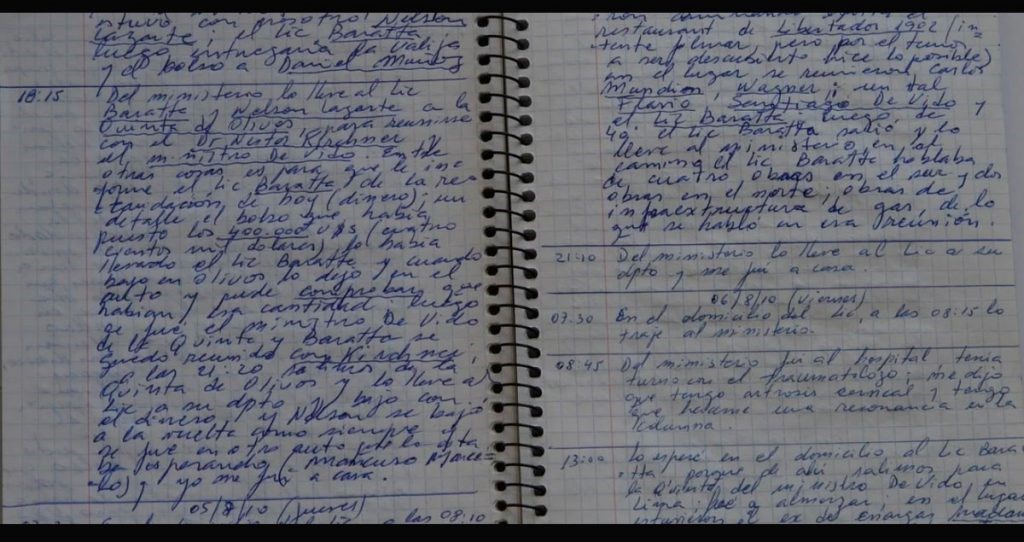 estuvo con nosotros Nelson
Lazarte; el Lic Baratta
luego entregaría la valija
y el bolso a Daniel Muñoz
18:15 Del ministerio lo lleve al Lic
Baratta y Nelson Lazarte a la
Quinta de Olivos, para reunirse
con el Dr Nestor Kirchner y
el ministro De Vido. Entre
otras cosas es para que le in
forme el Lic Baratta de la re
caudación de hoy (dinero); un
detalle el bolso que había
puesto los 400.000 U$S (cuatro
cientos mil dolares) lo había
llevado el Lic Baratta y cuando
bajo en Olivos lo dejo en el
auto y pude comprobar que
habían esa cantidad. Luego
se fue el ministro De Vido
de la Quinta y Baratta se
quedo reunido con Kirchner,
a las 21:20 salimos de la
Quinta de Olivos y lo lleve al
Lic a su dpto y bajo con
el dinero, y Nelson se bajó
a la vuelta como siempre y
se fue en otro auto que lo esta
ba esperando (Mancuso Marce=
lo) y yo me fui a casa.
05/8/10 (Jueves)
a las 08:10
restaurant de Libertador 1902 (in=
tente filmar, pero por el temor
a ser descubierto hice lo posible)
en el lugar se reunieron Carlos
Mundin, Wagner; un tal
Flavio, Santiago De Vido y
el Lic Baratta. Luego de
40' el Lic Baratta salió y lo
lleve al ministerio, en el
camino el Lic Baratta hablaba
de cuatro obras en el sur y dos
obras en el norte; obras de
infraextructura de gas de lo
que se habló en esa reunión.
21:40 Del ministerio lo lleve al Lic a su
dpto y me fui a casa.
06/8/10 (Viernes)
07:30 En el domicilio del Lic, a las 08:15 lo
traje al ministerio.
08:45 Del ministerio fui al hospital, tenia
turno con el traumatologo; me dijo
que tengo artrosis cervical y tengo
que hacerme una resonancia en la
columna.
13:00 Lo esperé en el domicilio al Lic Bara
tta porque de ahi salimos para
la Quinta del ministro De Vido en
Lima, fue a almorzar; en el lugar
estuvieron el ex de Enargas